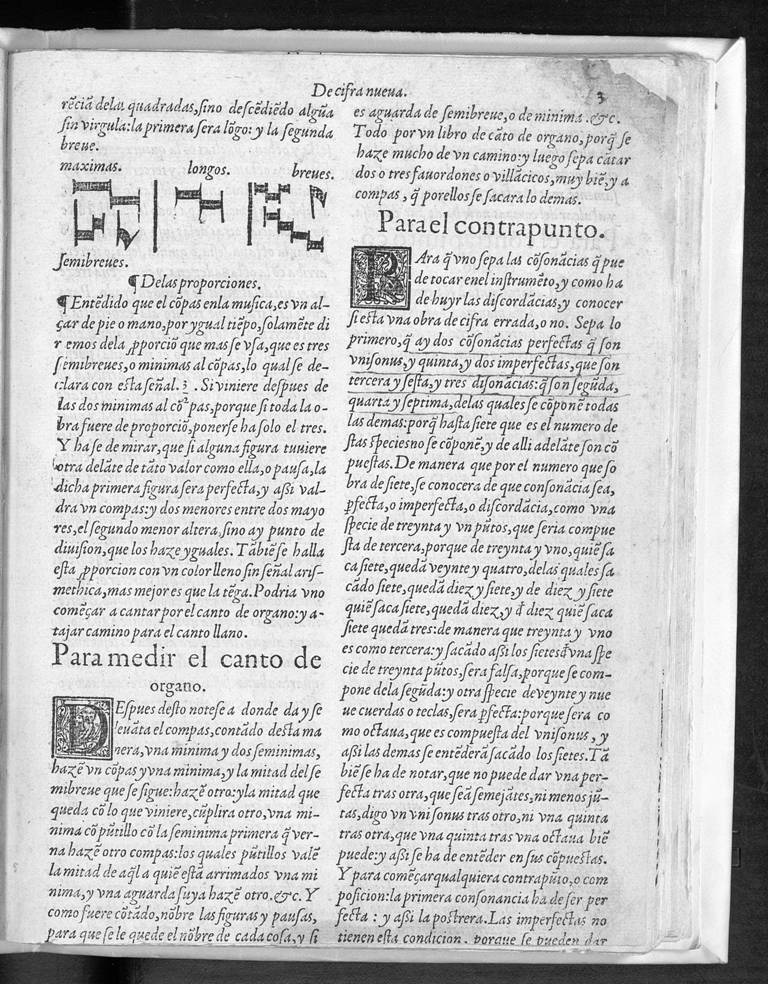 De cifra nueva.
3
rēciā delas quadradas, sino descēdiēdo algūa
sin virgula: la primera sera lōgo: y la segunda
breue.
maximas. longos. breues.
semibreues.
¶ Delas proporciones.
¶ Entēdido que el cōpas enla musica, es vn al-
çar de pie o mano, por ygual tiēpo, solamēte di
remos dela ꝓporciō que mas se vsa, que es tres
semibreues, o minimas al cōpas, lo qual se de-
clara con esta señal. 3 . Si viniere despues de
las dos minimas al cō²pas, porque si toda la o-
bra fuere de proporciō, ponerse ha solo el tres.
Y ha se de mirar, que si alguna figura tuuiere
otra delāte de tāto valor como ella, o pausa, la
dicha primera figura sera perfecta, y aßi val-
dra vn compas: y dos menores entre dos mayo
res, el segundo menor altera, sino ay punto de
diuision, que los haze yguales. Tābiē se halla
esta ꝓporcion con vn color lleno sin señal aris-
methica, mas mejor es que la tēga. Podria vno
començar a cantar por el canto de organo: y a-
tajar camino para el canto llano.
Para medir el canto de
organo.
DEspues desto notese a donde da y se
leuāta el compas, contādo desta ma
nera, vna minima y dos seminimas,
hazē vn cōpas y vna minima, y la mitad del se
mibreue que se sigue: hazē otro: y la mitad que
queda cō lo que viniere, cūplira otro, vna mi-
nima cō pūtillo cō la seminima primera q̄ ver-
na hazē otro compas: los quales pūtillos valē
la mitad de aq̄l a quiē estā arrimados vna mi
nima, y vna aguarda suya hazē otro. &c. Y
como fuere cōtādo, nōbre las figuras y pausas,
para que se le quede el nōbre de cada cosa, y si
es aguarda de semibreue, o de minima. &c.
Todo por vn libro de cāto de organo, porq̄ se
haze mucho de vn camino: y luego sepa cātar
dos o tres fauordones o villācicos, muy biē, y a
compas, q̄ por ellos se sacara lo demas.
Para el contrapunto.
PAra q̄ vno sepa las cōsonācias q̄ pue
de tocar enel instrumēto, y como ha
de huyr las discordācias, y conocer
si esta vna obra de cifra errada, o no. Sepa lo
primero, q̄ ay dos cōsonācias perfectas q̄ son
vnisonus, y quinta, y dos imperfectas, que son
tercera y sesta, y tres disonācias: q̄ son segūda,
quarta y septima, delas quales se cōponē todas
las demas: porq̄ hasta siete que es el numero de
stas species no se cōponē, y de alli adelāte son cō
puestas. De manera que por el numero que so
bra de siete, se conocera de que consonācia sea,
ꝑfecta, o imperfecta, o discordācia, como vna
specie de treynta y vn pūtos, que seria compue
sta de tercera, porque de treynta y vno, quiē sa
ca siete, quedā veynte y quatro, delas quales sa
cādo siete, quedā diez y siete, y de diez y siete
quiē saca siete, quedā diez, y đ diez quiē saca
siete quedā tres: de manera que treynta y vno
es como tercera: y sacādo aßi los sietes đ vna spe
cie de treynta pūtos, sera falsa, porque se com-
pone dela segūda: y otra specie de veynte y nue
ue cuerdas o teclas, sera ꝑfecta: porque sera co
mo octaua, que es compuesta del vnisonus, y
aßi las demas se entēderā sacādo los sietes. Tā
biē se ha de notar, que no puede dar vna per-
fecta tras otra, que seā semejātes, ni menos jū-
tas, digo vn vnisonus tras otro, ni vna quinta
tras otra, que vna quinta tras vna octaua biē
puede: y aßi se ha de entēder en sus cōpuestas.
Y para começar qualquiera contrapūto, o com
posicion: la primera consonancia ha de ser per
fecta : y aßi la postrera. Las imperfectas no
tienen esta condicion, porque se pueden dar